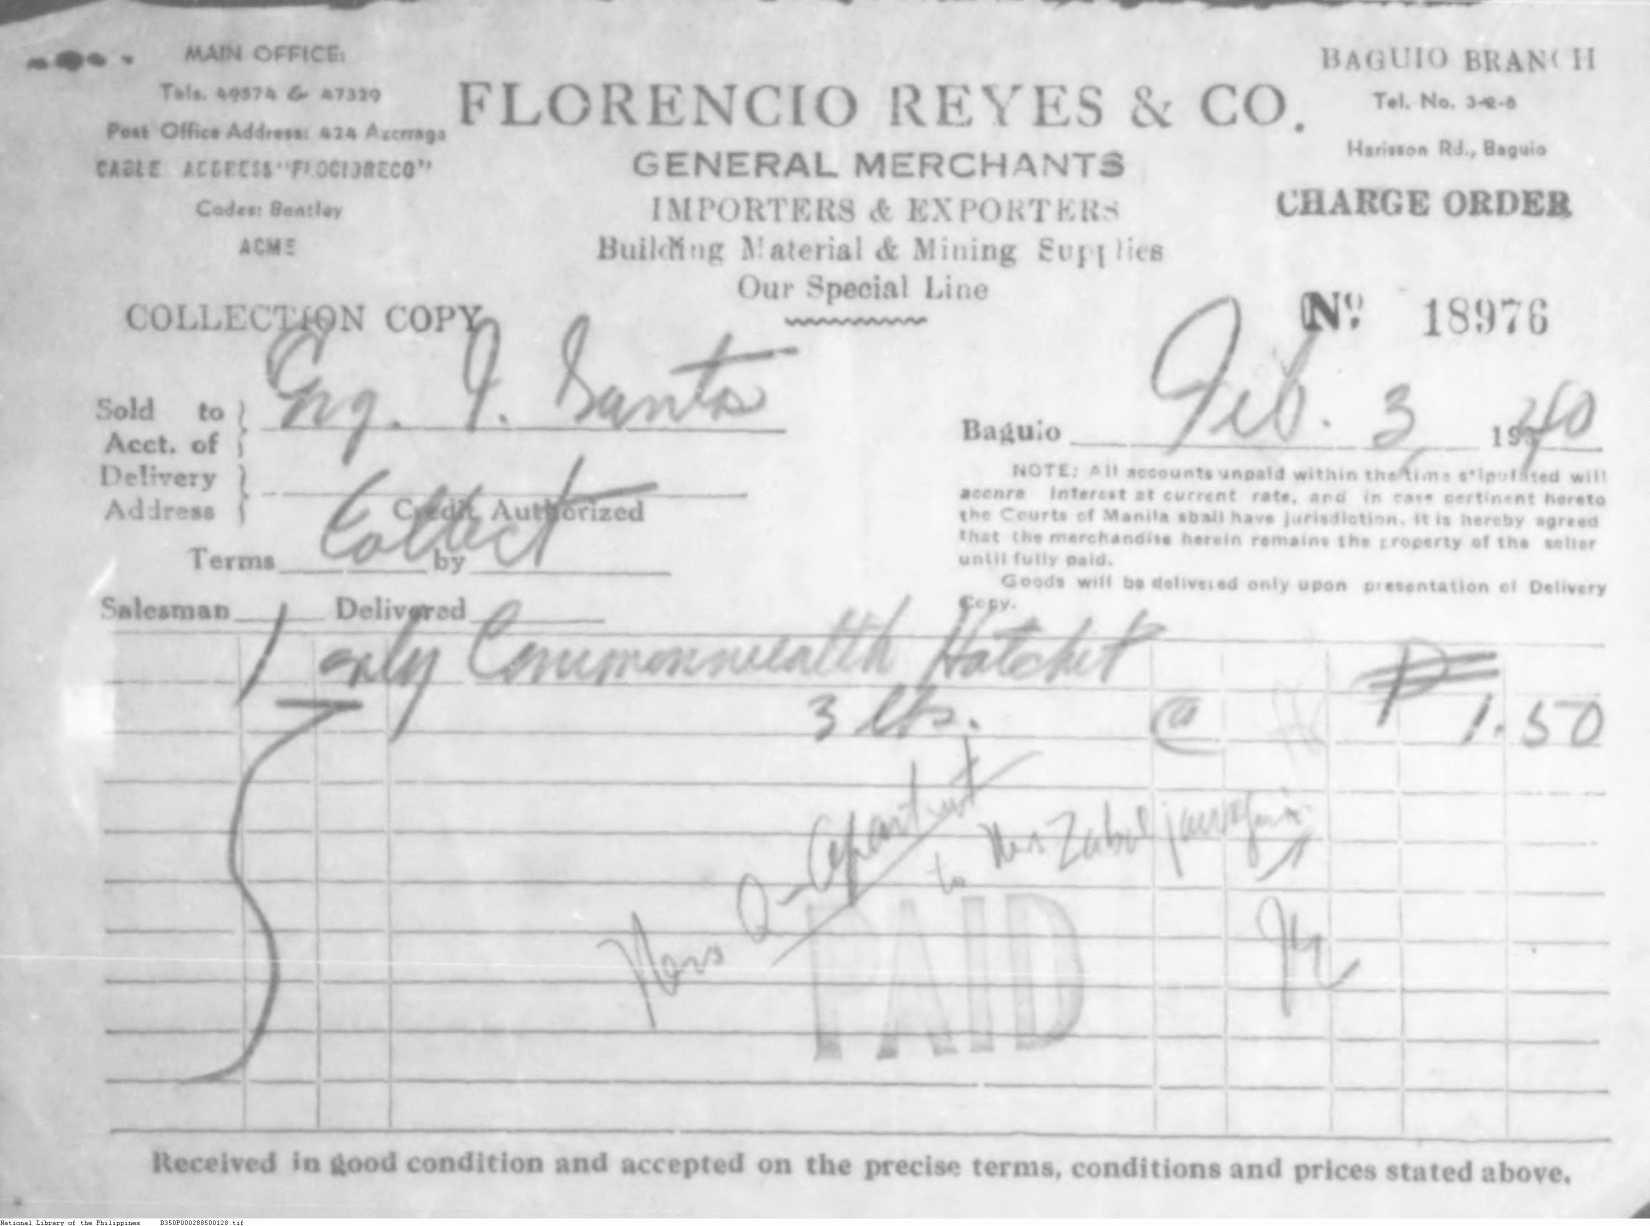 MAIN OFFICE:
Tels. 49574 & 47329
Post Office Address: 424 Azcrraga
CABLE ADDRESS "FLOCIDRECO"
Codes: Bentley
ACME
FLORENCIO REYES & CO.
GENERAL MERCHANTS
IMPORTERS & EXPORTERS
Building Material & Mining Supplies
Our Special Line
BAGUIO BRANCH
Tel. No. 3-2-8
Harisson Rd., Baguio
CHARGE ORDER
COLLECTION COPY
Nº 18976
Sold to Eng. J. Santos
Acct. of
Baguio Feb. 3, 1940
Delivery
Address
Credit Authorized
Terms Collect by
Salesman Delivered
NOTE: All accounts unpaid within the time stipulated will
accure Interest at current rate, and in case pertinent hereto
the Courts of Manila shall have jurisdiction, it is hereby agreed
that the merchandise herein remains the property of the seller
until fully paid.
Goods will be delivered only upon presentation of Delivery
Copy.
1 only Commonwealth Hatchet
3 lbs. @ ₱ 1.50
to Mrs Zabel
Mrs Q-
PAID
Received in good condition and accepted on the precise terms, conditions and prices stated above.
National Library of the Philippines B350P000288500128.tif